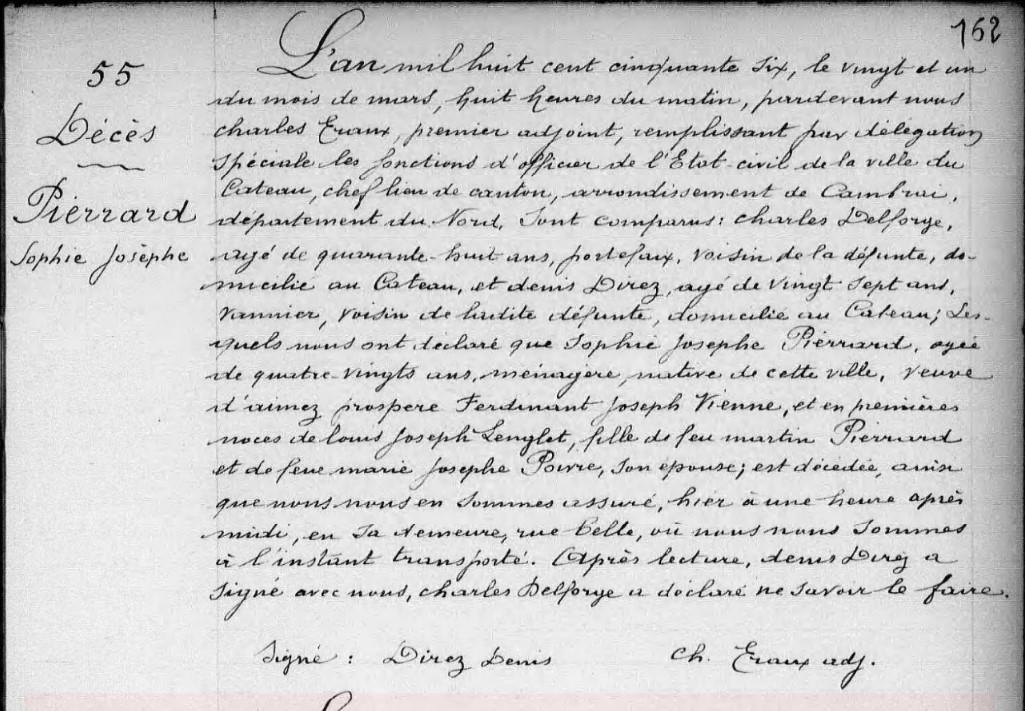 162
55
Décès
Pierrard
Sophie Josèphe
L'an mil huit cent cinquante six, le vingt et un
du mois de mars, huit heures du matin, pardevant nous
charles Eraux, premier adjoint, remplissant par délégation
spéciale les fonctions d'officier de l'Etat-civil de la ville du
Cateau, chef lieu de canton, arrondissement de Cambrai,
département du Nord, Sont comparus: charles Delforge,
agé de quarante-huit ans, portefaix, voisin de la défunte, do-
micilié au Cateau, et denis Direz, agé de vingt sept ans,
vannier, voisin de ladite défunte, domicilié au Cateau; Les-
quels nous ont déclaré que Sophie Josephe Pierrard, agée
de quatre-vingts ans, ménagère, native de cette ville, veuve
d'aimez prospere Ferdinant Joseph Vienne, et en premières
noces de louis Joseph Lenglet, fille de feu martin Pierrard
et de feue marie Josephe Poivre, son épouse; est décédée, ainsi
que nous nous en sommes assuré, hier à une heure après
midi, en sa demeure, rue belle, où nous nous sommes
à l'instant transporté. Après lecture, denis Direz a
signé avec nous, charles Delforge a déclaré ne savoir le faire.
Signé : Direz Denis Ch. Eraux adj.